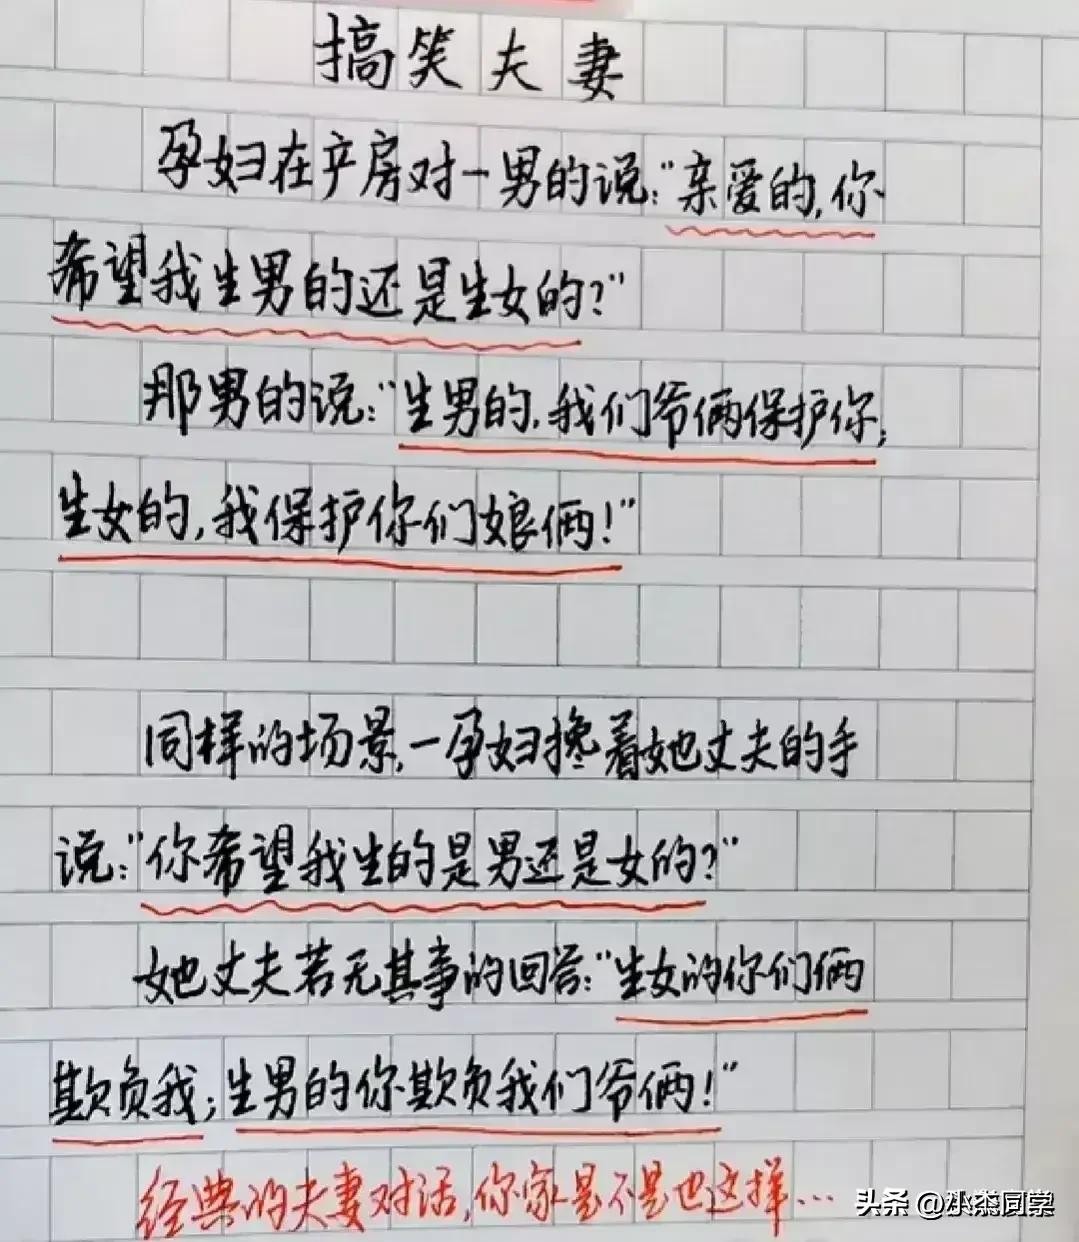 搞笑夫妻
孕妇在产房对一男的说："亲爱的，你
希望我生男的还是生女的？"
那男的说："生男的，我们爷俩保护你；
生女的，我保护你们娘俩！"
同样的场景，一孕妇搀着她丈夫的手
说："你希望我生的是男还是女的？"
她丈夫若无其事的回答："生女的你们俩
欺负我；生男的你欺负我们爷俩！"
经典的夫妻对话，你家是不是也这样…
头条